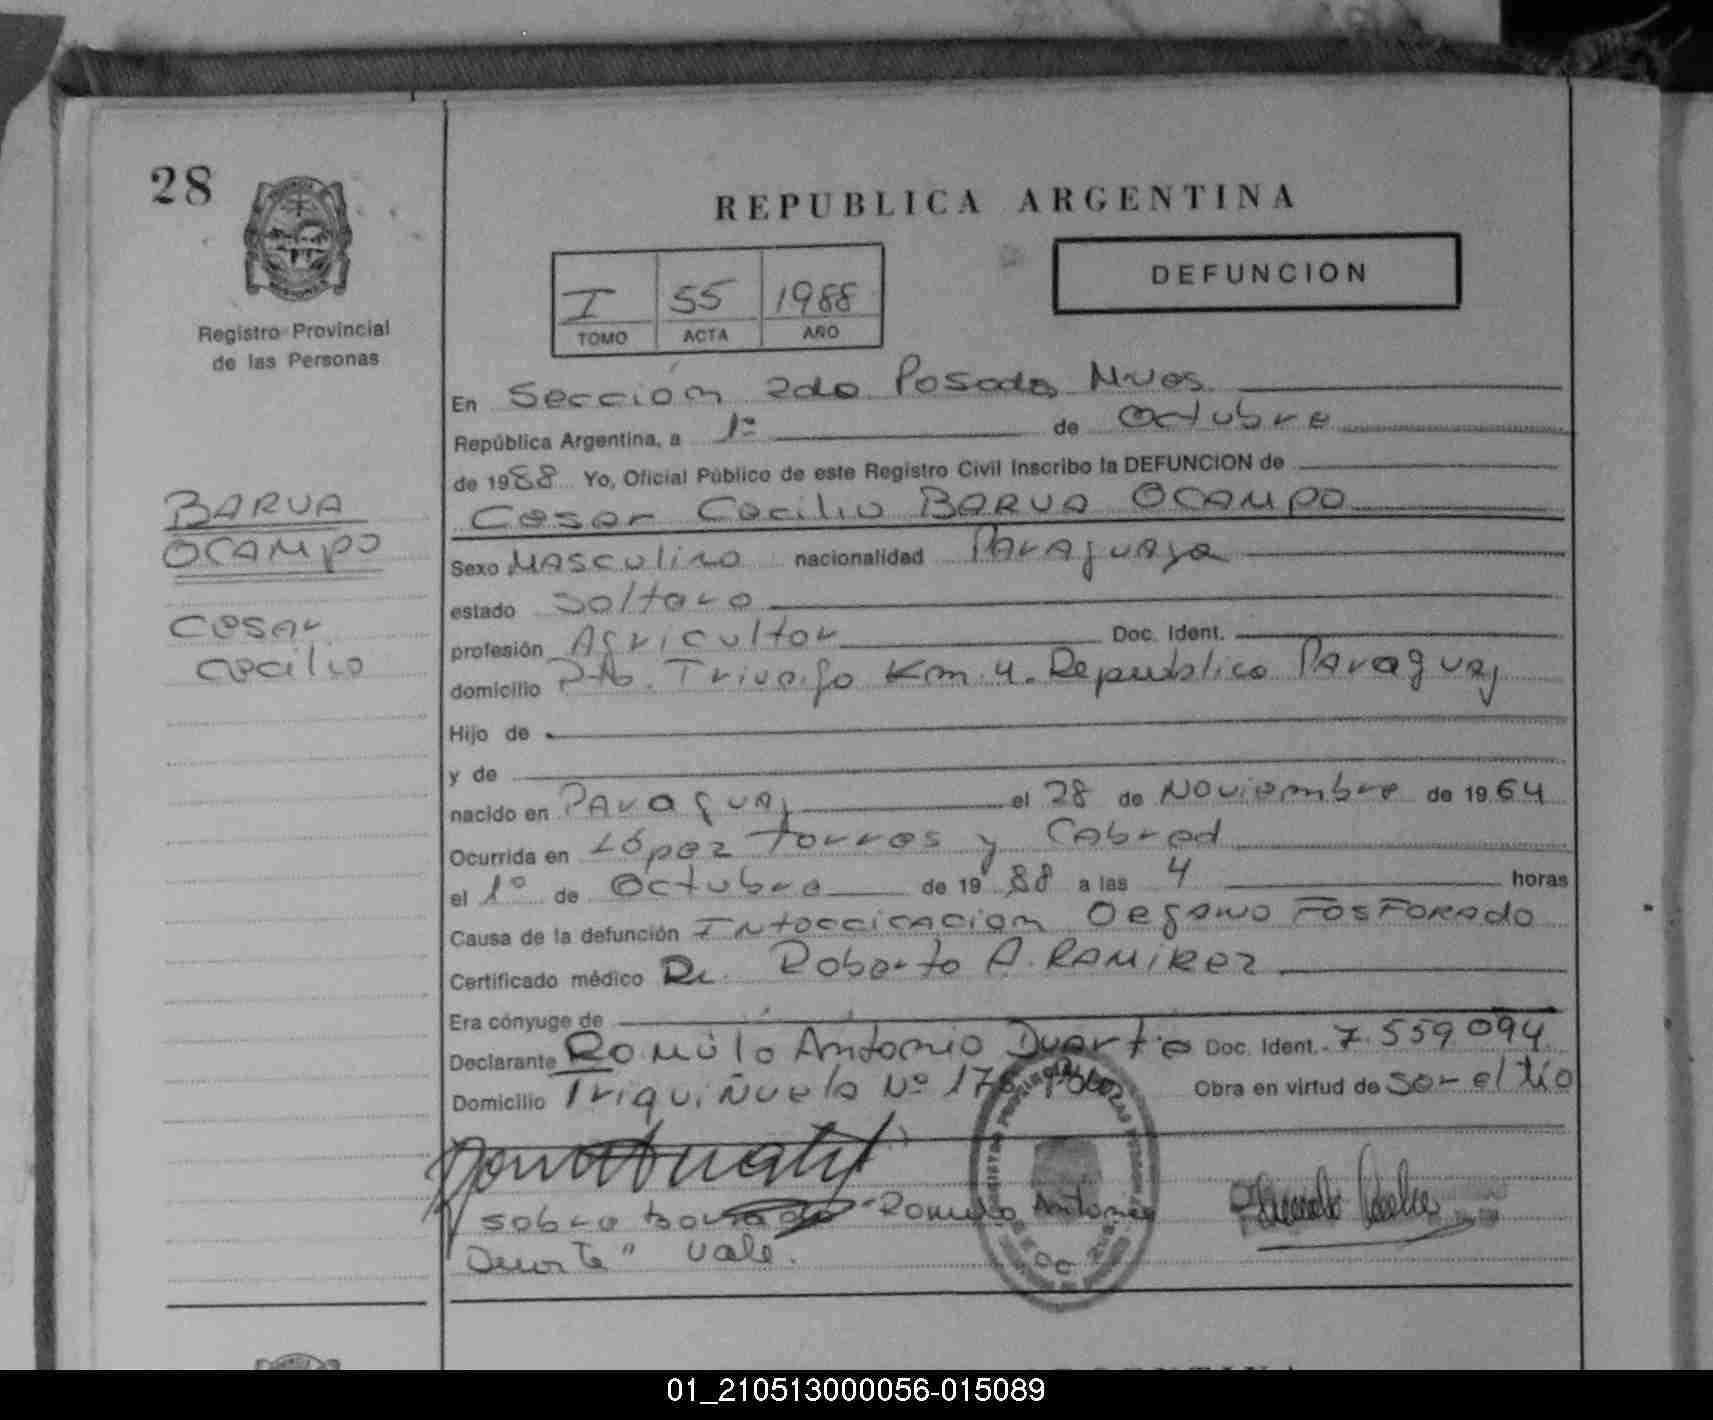 28
REPUBLICA ARGENTINA
DEFUNCION
I 55 1988
TOMO ACTA AÑO
Registro Provincial
de las Personas
En Sección 2da Posadas Mnes
República Argentina, a 1º de Octubre
de 1988 Yo, Oficial Público de este Registro Civil inscribo la DEFUNCION de
Cesar Cecilio BARUA OCAMPO
BARUA
OCAMPO
Cesar
Cecilio
Sexo Masculino nacionalidad Paraguaya
estado Soltero
profesión Agricultor Doc. Ident.
domicilio Pto. Triunfo Km. 4. Republica Paraguay
Hijo de
y de
nacido en Paraguay el 28 de Noviembre de 1964
Ocurrida en López Torres y Cabred
el 1º de Octubre de 1988 a las 4 horas
Causa de la defunción Intoccicacion Organo Fosforado
Certificado médico Dr. Roberto A. Ramirez
Era cónyuge de
Declarante Romulo Antonio Duarte Doc. Ident. 7.559094
Domicilio Triquiñuela Nº 176 Pdas Obra en virtud de Ser el tío
sobre borrado "Romulo Antonio
Duarte" vale.
01_210513000056-015089